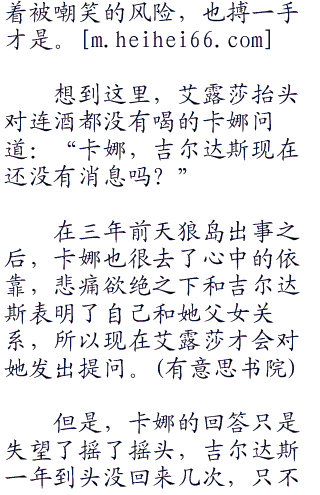 着被嘲笑的风险，也搏一手
才是。[m.heihei66.com]
想到这里，艾露莎抬头
对连酒都没有喝的卡娜问
道：“卡娜，吉尔达斯现在
还没有消息吗？”
在三年前天狼岛出事之
后，卡娜也很去了心中的依
靠，悲痛欲绝之下和吉尔达
斯表明了自己和她父女关
系，所以现在艾露莎才会对
她发出提问。(有意思书院)
但是，卡娜的回答只是
失望了摇了摇头，吉尔达斯
一年到头没回来几次，只不